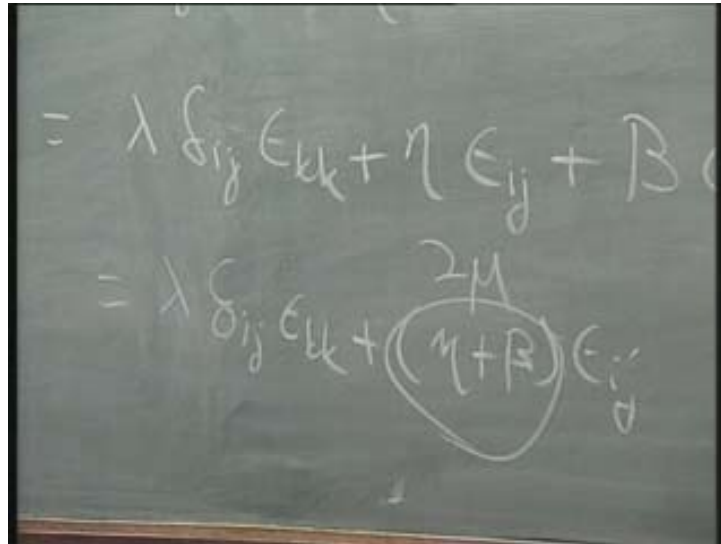 = λ δij ϵkk + η ϵij + β
= λ δij ϵkk + (η+β) ϵij
2μ